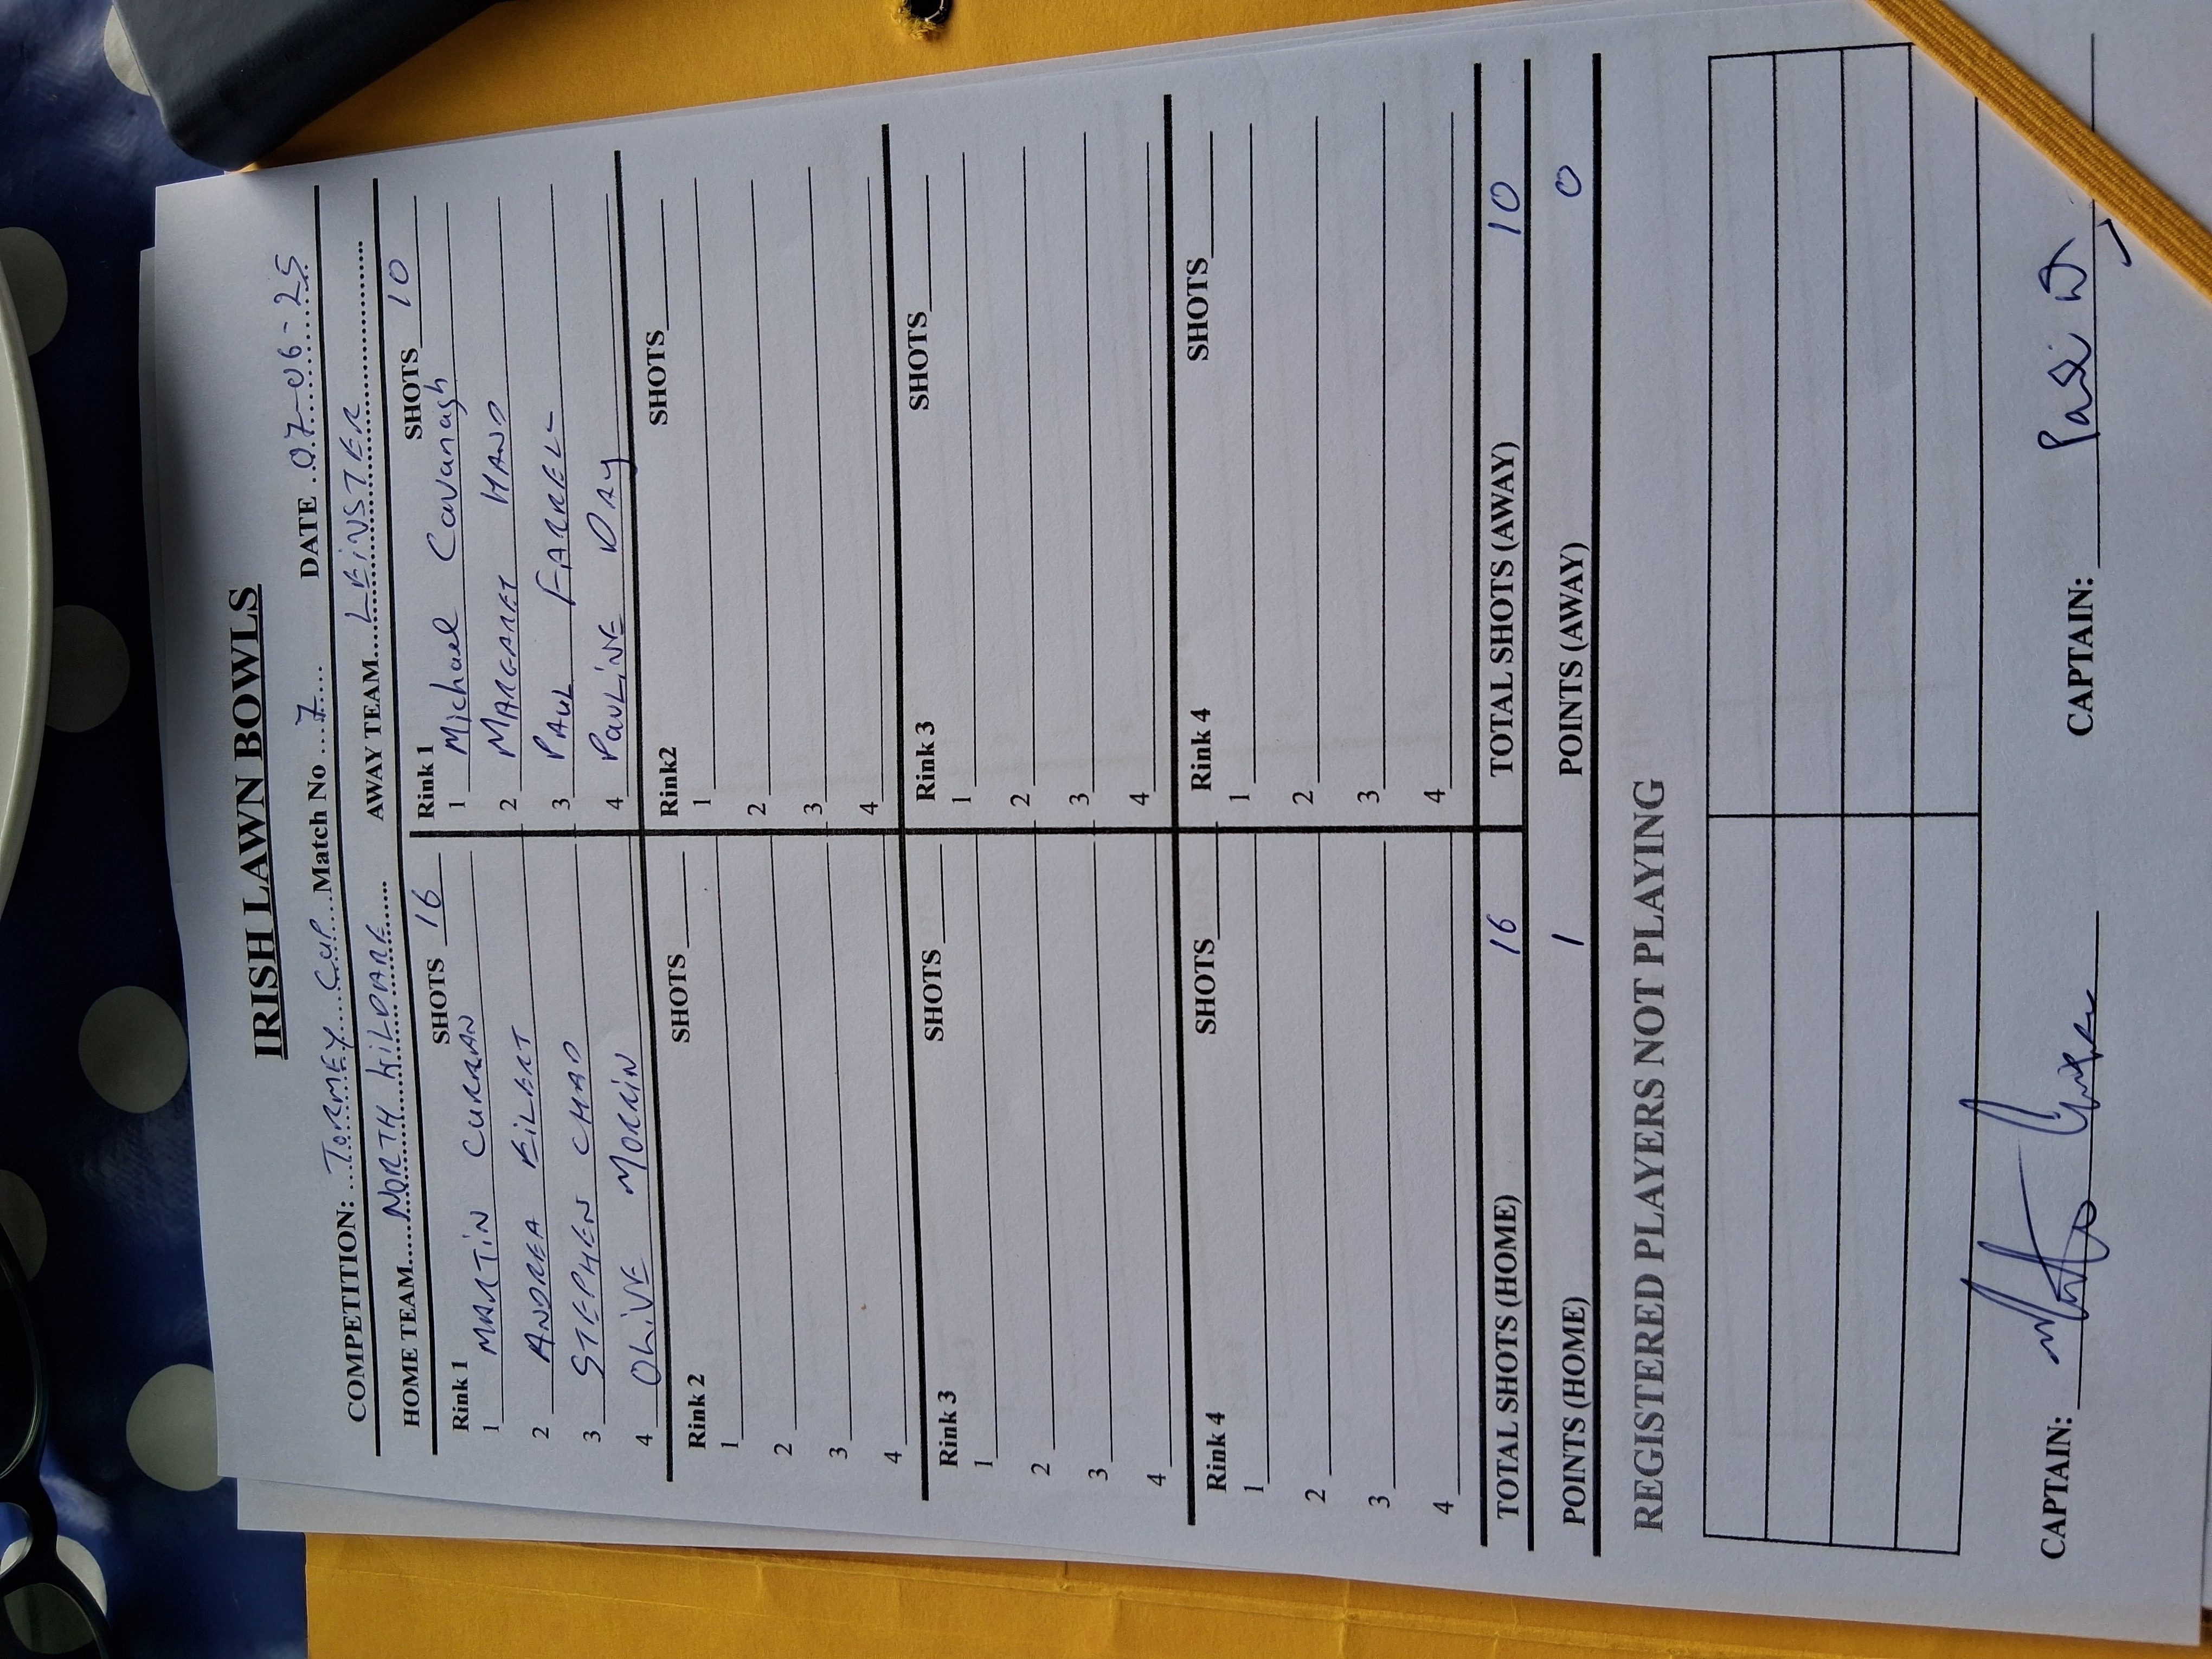 IRISH LAWN BOWLS
COMPETITION: TORMEY CUP Match No 7 DATE 07-06-25
HOME TEAM NORTH KILDARE AWAY TEAM LEINSTER
Rink 1 SHOTS 16 Rink 1 SHOTS 10
1 MARTIN CURRAN 1 Michael Cavanagh
2 ANDREA EILERT 2 MARGARET HAND
3 STEPHEN CHAD 3 PAUL FARRELL
4 OLIVE MORRIN 4 PAULINE DAY
Rink 2 SHOTS Rink2 SHOTS
1 1
2 2
3 3
4 4
Rink 3 SHOTS Rink 3 SHOTS
1 1
2 2
3 3
4 4
Rink 4 SHOTS Rink 4 SHOTS
1 1
2 2
3 3
4 4
TOTAL SHOTS (HOME) 16 TOTAL SHOTS (AWAY) 10
POINTS (HOME) 1 POINTS (AWAY) 0
REGISTERED PLAYERS NOT PLAYING
CAPTAIN: CAPTAIN: